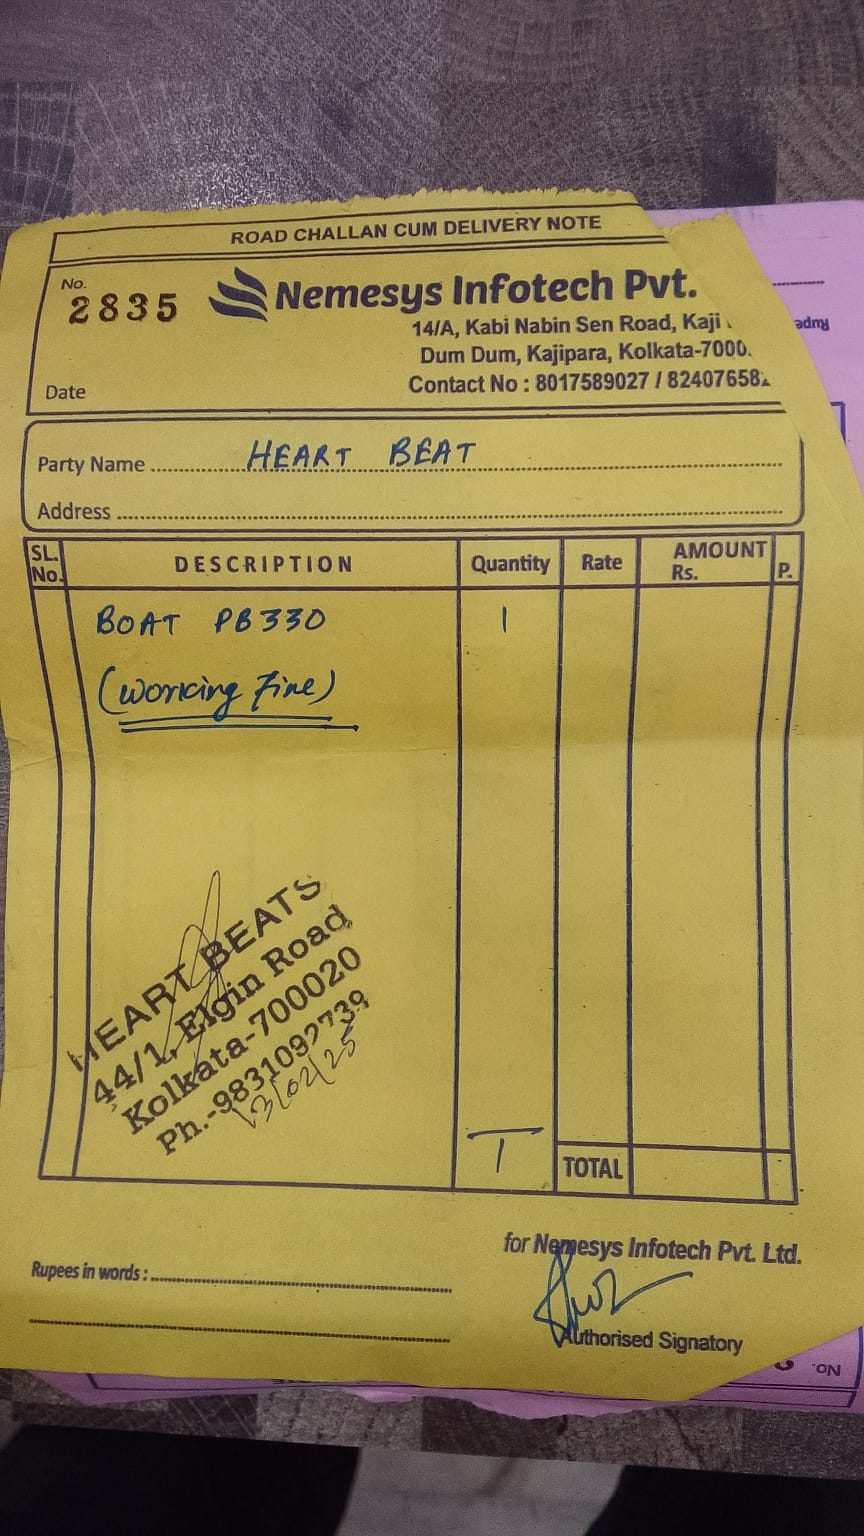 ROAD CHALLAN CUM DELIVERY NOTE
No.
2835
Nemesys Infotech Pvt.
14/A, Kabi Nabin Sen Road, Kaji
Dum Dum, Kajipara, Kolkata-7000
Contact No : 8017589027 / 82407658
Date
Party Name HEART BEAT
Address
SL. No. DESCRIPTION Quantity Rate AMOUNT Rs. P.
BOAT PB330 1
(Working Fine)
HEART BEATS
44/1, Elgin Road
Kolkata-700020
Ph.-9831092739
13/02/25
1 TOTAL
for Nemesys Infotech Pvt. Ltd.
Rupees in words :
Authorised Signatory
No.